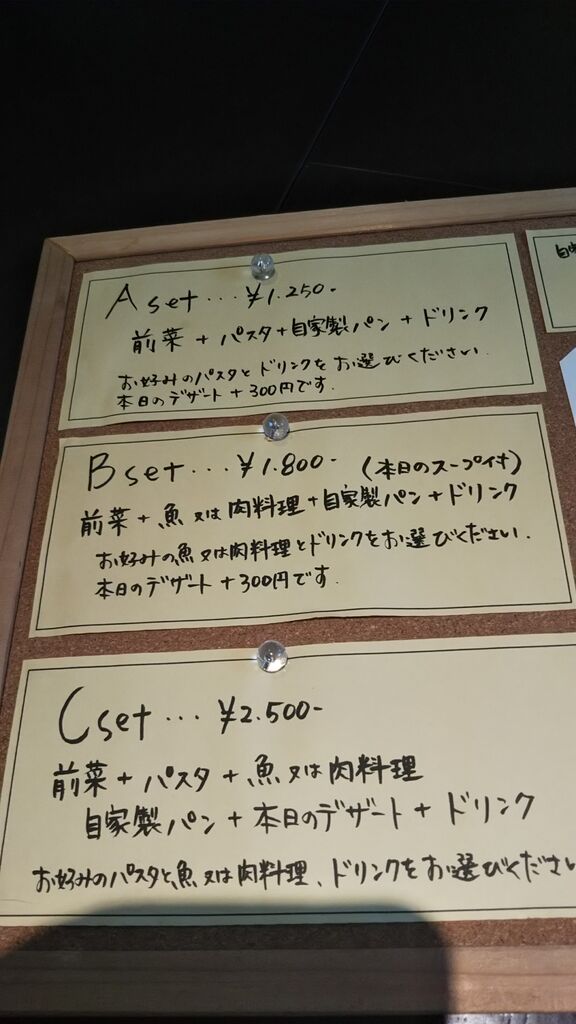 A set...¥1.250-
前菜 + パスタ+自家製パン + ドリンク
お好みのパスタとドリンクをお選びください.
本日のデザート +300円です.
B set...¥1.800- (本日のスープ付)
前菜 + 魚又は肉料理+自家製パン+ドリンク
お好みの魚又は肉料理とドリンクをお選びください.
本日のデザート +300円です.
C set...¥2.500-
前菜 + パスタ + 魚又は肉料理
自家製パン + 本日のデザート + ドリンク
お好みのパスタと魚又は肉料理、ドリンクをお選びくださ